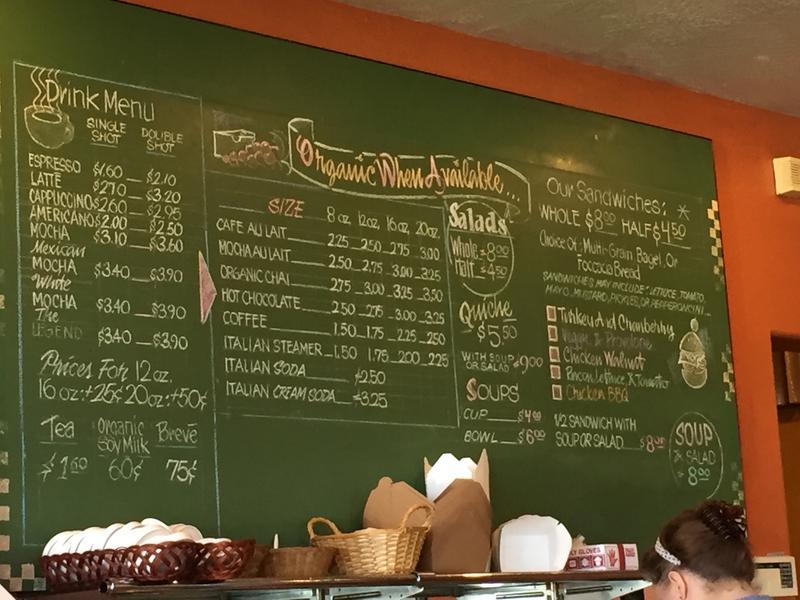 Drink Menu
SINGLE SHOT DOUBLE SHOT
ESPRESSO $1.60 $2.10
LATTE $2.70 $3.20
CAPPUCCINO $2.60 $2.95
AMERICANO $2.00 $2.50
MOCHA $3.10 $3.60
Mexican
MOCHA $3.40 $3.90
White
MOCHA $3.40 $3.90
The
LEGEND $3.40 $3.90
Prices For 12 oz.
16 oz:+25¢ 20 oz:+50¢
Tea Organic Soy Milk Breve
$1.60 60¢ 75¢
Organic When Available...
SIZE 8 oz, 12 oz, 16 oz, 20 oz.
CAFE AU LAIT 2.25 2.50 2.75 3.00
MOCHA AU LAIT 2.50 2.75 3.00 3.25
ORGANIC CHAI 2.75 3.00 3.25 3.50
HOT CHOCOLATE 2.50 2.75 3.00 3.25
COFFEE 1.50 1.75 2.25 2.50
ITALIAN STEAMER 1.50 1.75 2.00 2.25
ITALIAN SODA $2.50
ITALIAN CREAM SODA $3.25
Salads
Whole $8.00
Half $4.50
Quiche
$5.50
WITH SOUP
OR SALAD $9.00
SOUPS
CUP $4.00
BOWL $6.00
Our Sandwiches: *
WHOLE $8.00 HALF $4.50
Choice Of: Multi-Grain Bagel, Or
Foccocia Bread
SANDWICHES MAY INCLUDE: LETTUCE, TOMATO,
MAYO, MUSTARD, PICKLES, OR PEPPERONCINI...
Turkey And Cranberry
Veggie & Provolone
Chicken Walnut
Bacon, Lettuce, & Tomato
Chicken BBQ
1/2 SANDWICH WITH
SOUP OR SALAD $8.00
SOUP
& SALAD
$8.00
GLOVES